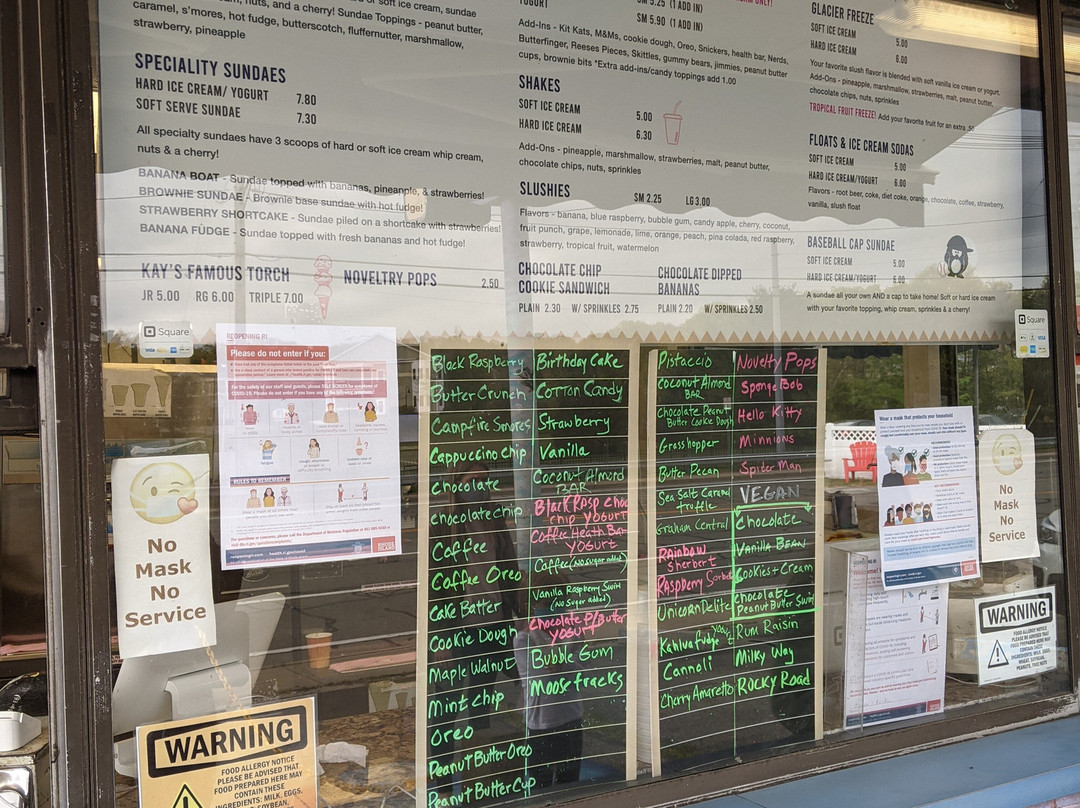 nuts, and a cherry! Sundae Toppings - peanut butter,
caramel, s'mores, hot fudge, butterscotch, fluffernutter, marshmallow,
strawberry, pineapple
SPECIALITY SUNDAES
HARD ICE CREAM/ YOGURT 7.80
SOFT SERVE SUNDAE 7.30
All specialty sundaes have 3 scoops of hard or soft ice cream whip cream,
nuts & a cherry!
BANANA BOAT - Sundae topped with bananas, pineapple, & strawberries!
BROWNIE SUNDAE - Brownie base sundae with hot fudge!
STRAWBERRY SHORTCAKE - Sundae piled on a shortcake with strawberries!
BANANA FUDGE - Sundae topped with fresh bananas and hot fudge!
KAY'S FAMOUS TORCH
JR 5.00 RG 6.00 TRIPLE 7.00
NOVELTRY POPS 2.50
YOGURT
SM 5.25 (1 ADD IN)
SM 5.90 (1 ADD IN)
Add-Ins - Kit Kats, M&Ms, cookie dough, Oreo, Snickers, health bar, Nerds,
Butterfinger, Reeses Pieces, Skittles, gummy bears, jimmies, peanut butter
cups, brownie bits *Extra add-ins/candy toppings add 1.00
SHAKES
SOFT ICE CREAM 5.00
HARD ICE CREAM 6.30
Add-Ons - pineapple, marshmallow, strawberries, malt, peanut butter,
chocolate chips, nuts, sprinkles
SLUSHIES SM 2.25 LG 3.00
Flavors - banana, blue raspberry, bubble gum, candy apple, cherry, coconut,
fruit punch, grape, lemonade, lime, orange, peach, pina colada, red raspberry,
strawberry, tropical fruit, watermelon
CHOCOLATE CHIP
COOKIE SANDWICH
PLAIN 2.30 W/ SPRINKLES 2.75
CHOCOLATE DIPPED
BANANAS
PLAIN 2.20 W/ SPRINKLES 2.50
GLACIER FREEZE
SOFT ICE CREAM 5.00
HARD ICE CREAM 6.00
Your favorite slush flavor is blended with soft vanilla ice cream or yogurt.
Add-Ons - pineapple, marshmallow, strawberries, malt, peanut butter,
chocolate chips, nuts, sprinkles
TROPICAL FRUIT FREEZE! Add your favorite fruit for an extra .50
FLOATS & ICE CREAM SODAS
SOFT ICE CREAM 5.00
HARD ICE CREAM/YOGURT 6.00
Flavors - root beer, coke, diet coke, orange, chocolate, coffee, strawberry,
vanilla, slush float
BASEBALL CAP SUNDAE
SOFT ICE CREAM 5.00
HARD ICE CREAM/YOGURT 6.00
A sundae all your own AND a cap to take home! Soft or hard ice cream
with your favorite topping, whip cream, sprinkles & a cherry!
Square
Square
REOPENING RI
Please do not enter if you:
RULES TO REMEMBER
No
Mask
No
Service
WARNING
FOOD ALLERGY NOTICE
PLEASE BE ADVISED THAT
FOOD PREPARED HERE MAY
CONTAIN THESE
INGREDIENTS: MILK, EGGS,
Black Raspberry
Butter Crunch
Campfire Smores
Cappuccino chip
Chocolate
chocolate chip
Coffee
Coffee Oreo
Cake Batter
Cookie Dough
Maple Walnut
Mint chip
Oreo
Peanut Butter Oreo
Peanut Butter Cup
Birthday Cake
Cotton Candy
Strawberry
Vanilla
Coconut Almond
BAR
Black Rasp choc
chip YOGURT
Coffee Heath Bar
YOGURT
Coffee (no sugar added)
Vanilla Raspberry Swirl
(no sugar added)
Chocolate P/Butter
YOGURT
Bubble Gum
Moose tracks
Pistaccio
Coconut Almond
BAR
Chocolate Peanut
Butter Cookie Dough
Grasshopper
Butter Pecan
Sea Salt Caramel
truffle
Graham Central
Rainbow
sherbert
Raspberry Sorbet
Unicorn Delite
Kahlua fudge
Cannoli
Cherry Amaretto
Novelty Pops
Sponge Bob
Hello Kitty
Minnions
Spider Man
VEGAN
Chocolate
Vanilla Bean
Cookies + Cream
Chocolate
Peanut Butter Swirl
Rum Raisin
Milky Way
Rocky Road
Wear a mask that protects your household
No
Mask
No
Service
WARNING
FOOD ALLERGY NOTICE
PLEASE BE ADVISED THAT
FOOD PREPARED HERE MAY
CONTAIN THESE